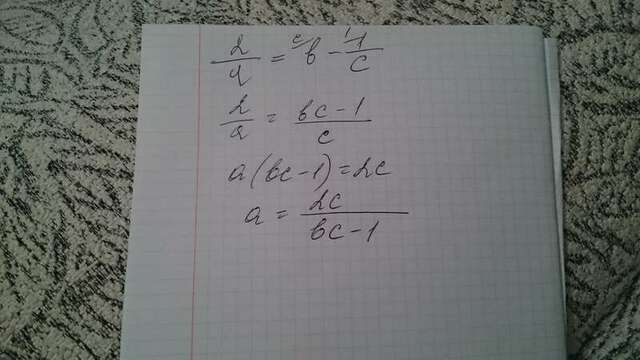 2/a = ᶜ⁄в - ¹⁄1/c
2/a = вc-1/c
a(вc-1)=2c
a = 2c/вc-1